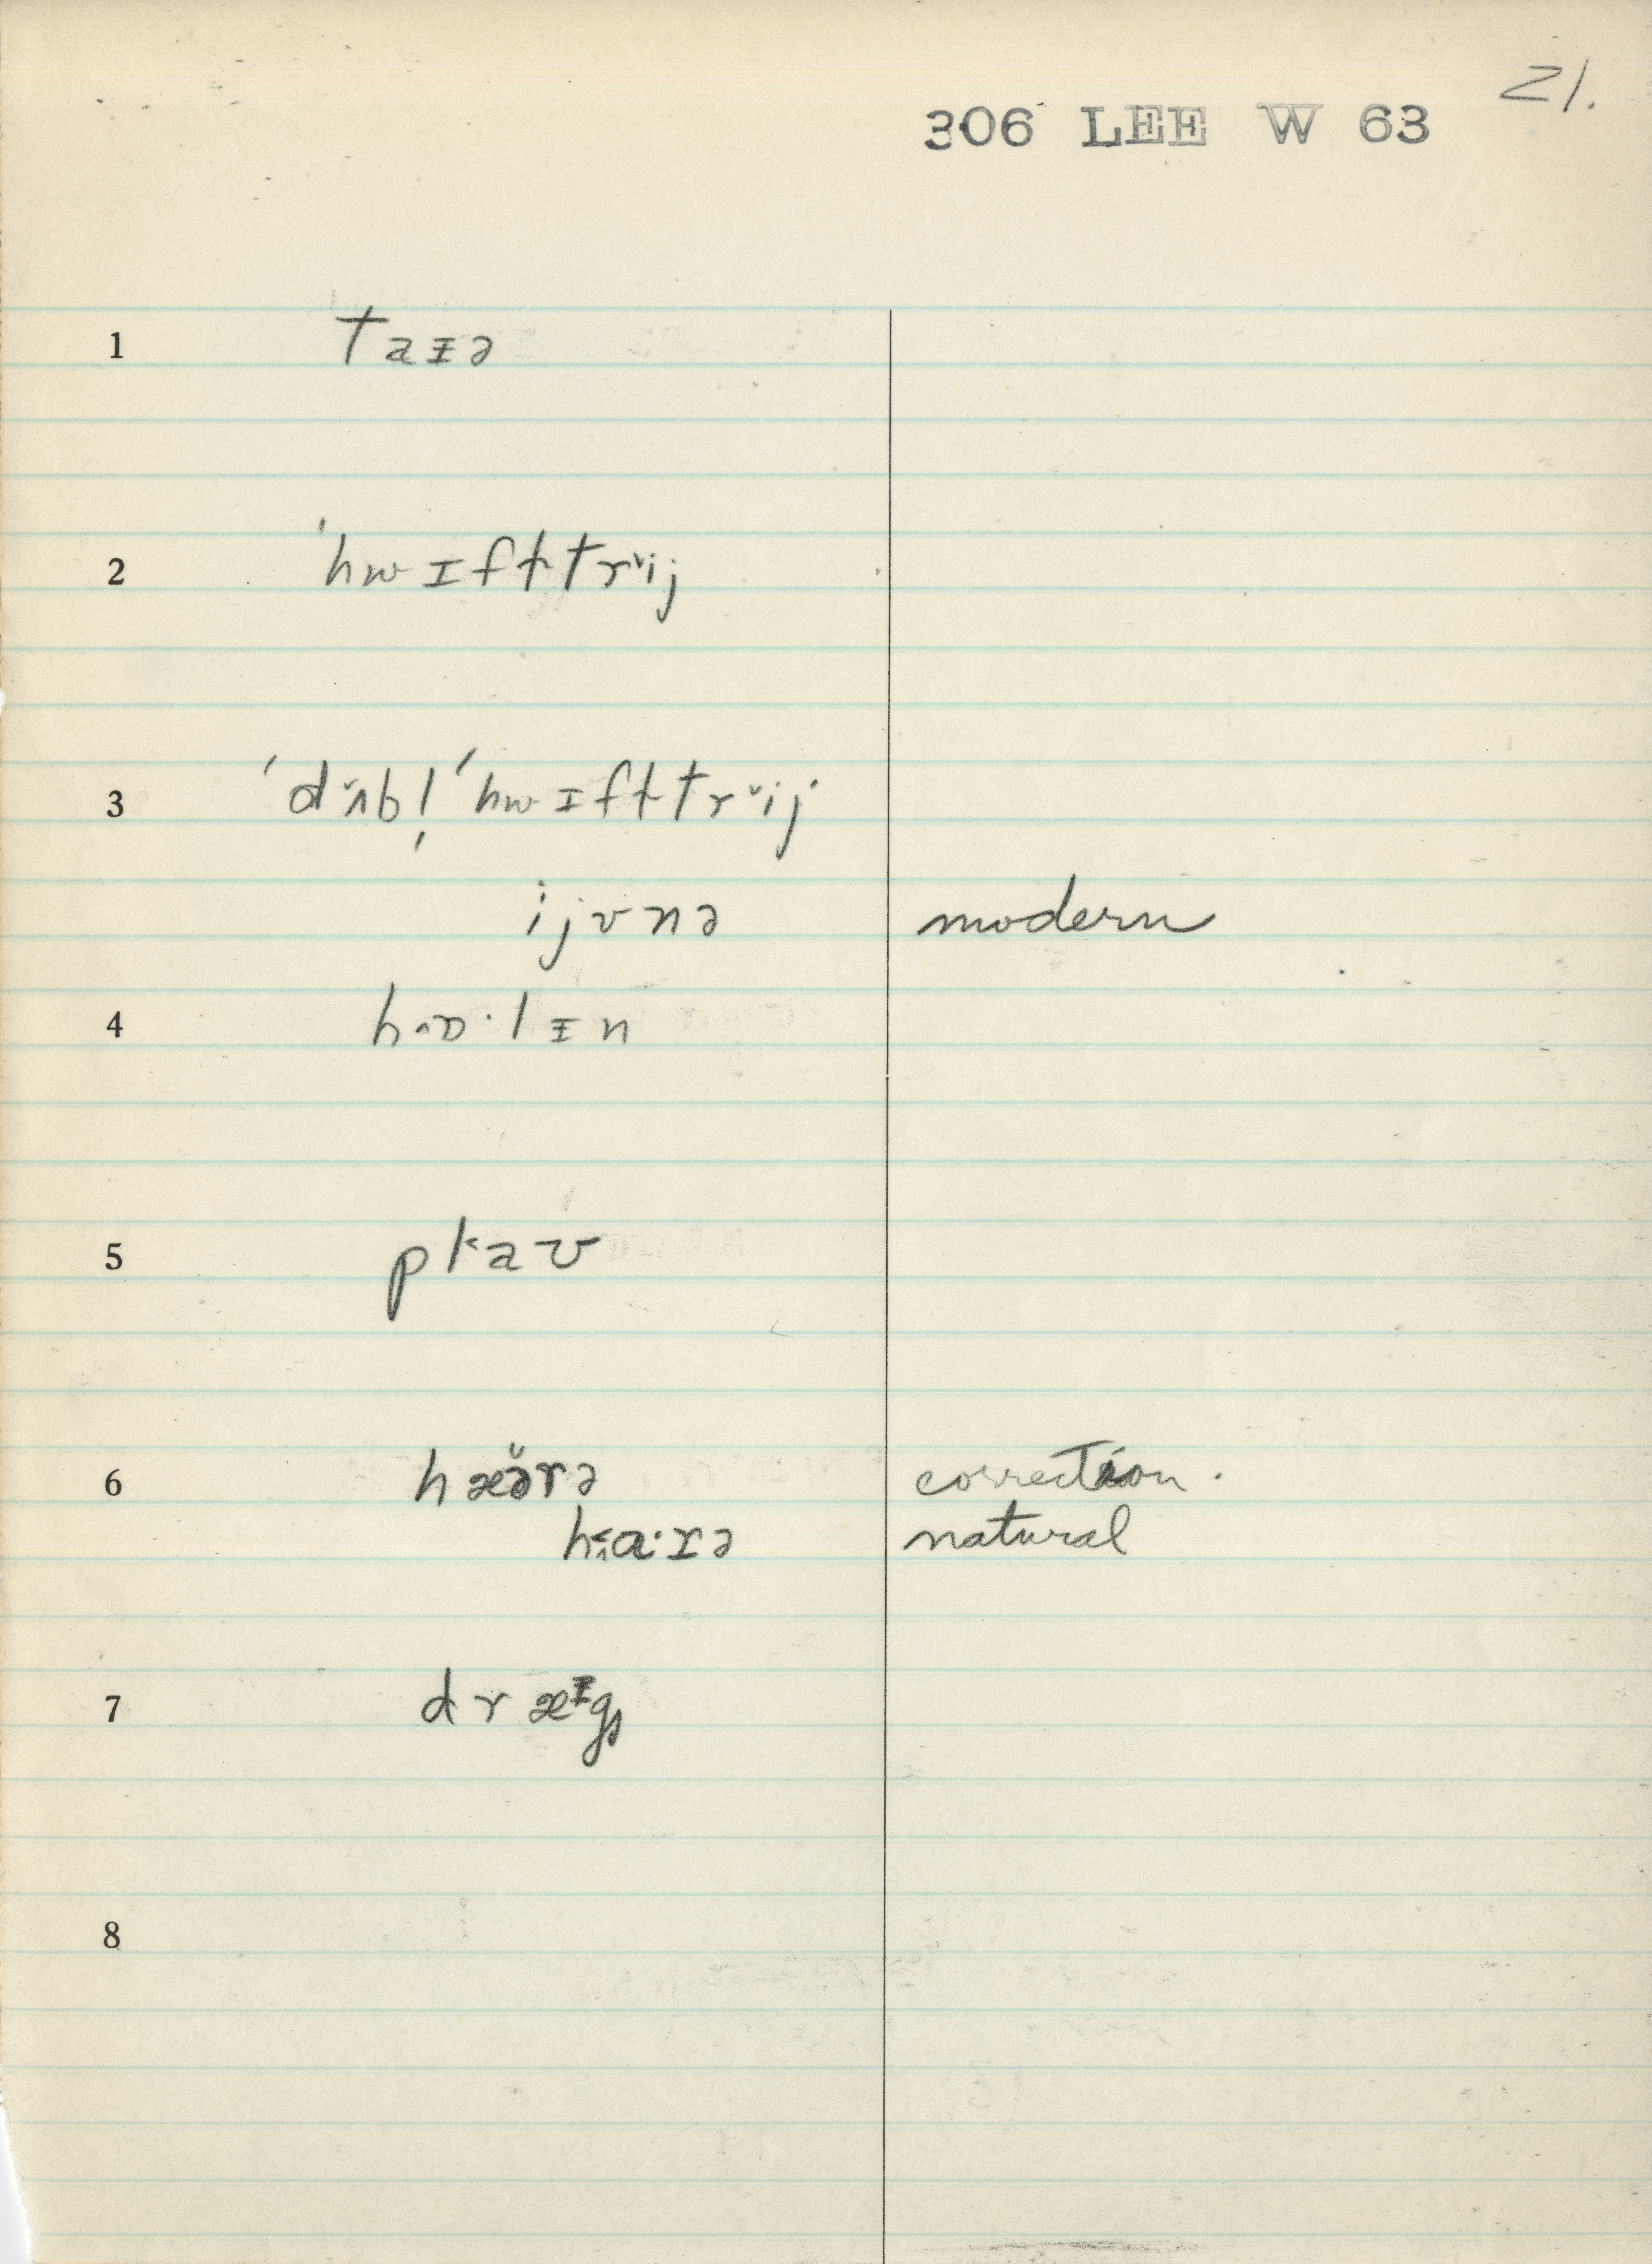 21.
306 LEE W 63
1 taᵻə
2 ˈhwɪft̵trᵛij
3 ˈdᵛʌbl̩ ˈhwɪft̵trᵛij
ijʊnə modern
4 hɒ·lᵻn
5 plaʊ
6 hæə̆rə correction.
hɑ·rə natural
7 dræᵻgs
8